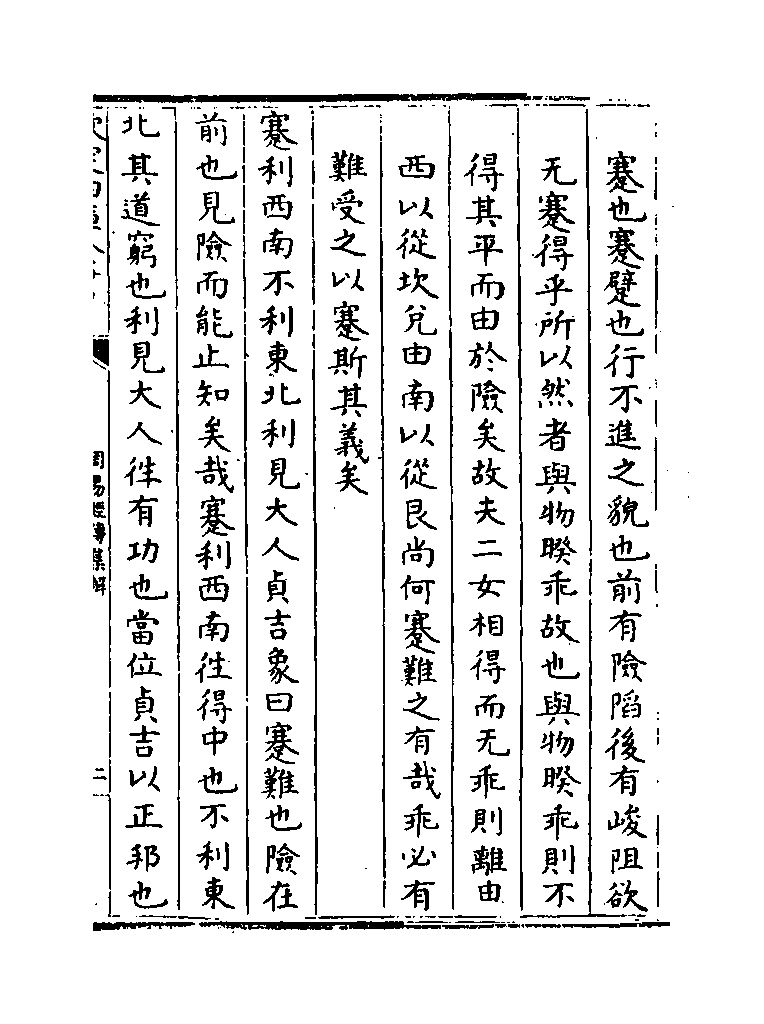 蹇也蹇躄也行不進之貌也前有險䧟後有峻阻欲
无蹇得乎所以然者與物暌乖故也與物暌乖則不
得其平而由於險矣故夫二女相得而无乖則離由
西以從坎兌由南以從艮尚何蹇難之有哉乖必有
難受之以蹇斯其義矣
蹇利西南不利東北利見大人貞吉彖曰蹇難也險在
前也見險而能止知矣哉蹇利西南徃得中也不利東
北其道窮也利見大人徃有功也當位貞吉以正邦也
周易經傳集解
二